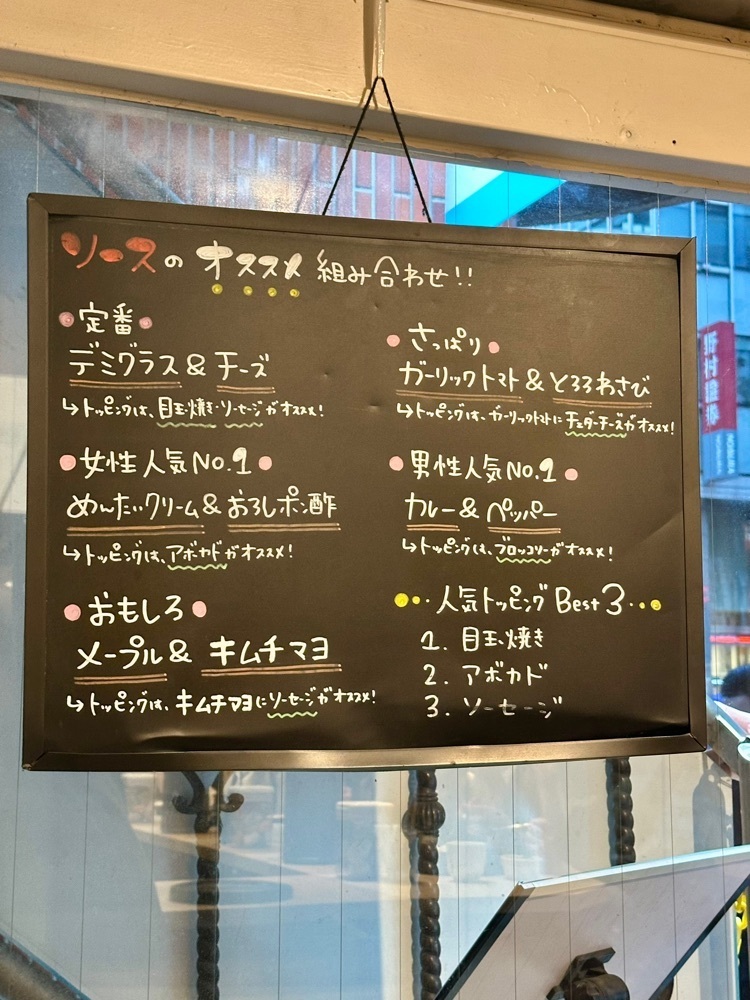 ソースのオススメ組み合わせ!!
定番
デミグラス&チーズ
↳トッピングは、目玉焼き・ソーセージがオススメ!
女性人気No.1
めんたいクリーム&おろしポン酢
↳トッピングは、アボカドがオススメ!
おもしろ
メープル&キムチマヨ
↳トッピングは、キムチマヨにソーセージがオススメ!
さっぱり
ガーリックトマト&とろろわさび
↳トッピングは、ガーリックトマトにチェダーチーズがオススメ!
男性人気No.1
カレー&ペッパー
↳トッピングは、ブロッコリーがオススメ!
人気トッピングBest3
1. 目玉焼き
2. アボカド
3. ソーセージ